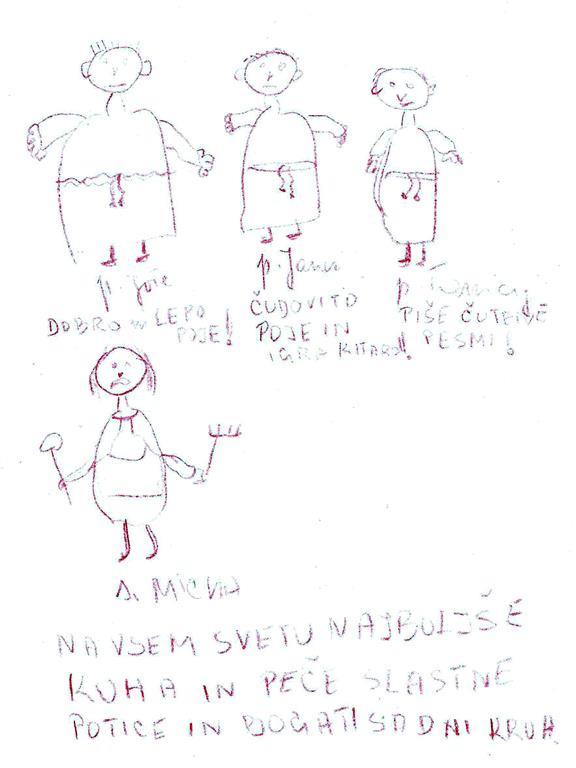 p. Jože
DOBRO in LEPO
POJE!
p. Janez
ČUDOVITO
POJE IN
IGRA KITARO!
p.
PIŠE ČUTEČE
PESMI!
s.
NA VSEM SVETU NAJBOLJŠE
KUHA IN PEČE SLASTNE
POTICE IN BOGATI SADNI KRUH